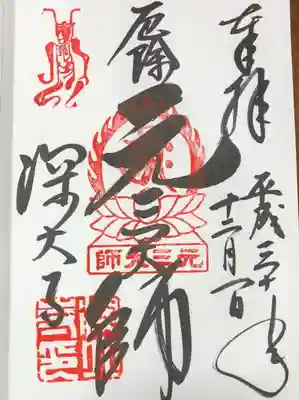 奉拝
平成三十年
十二月一日
厄除
元三大師
師大三元
深大寺